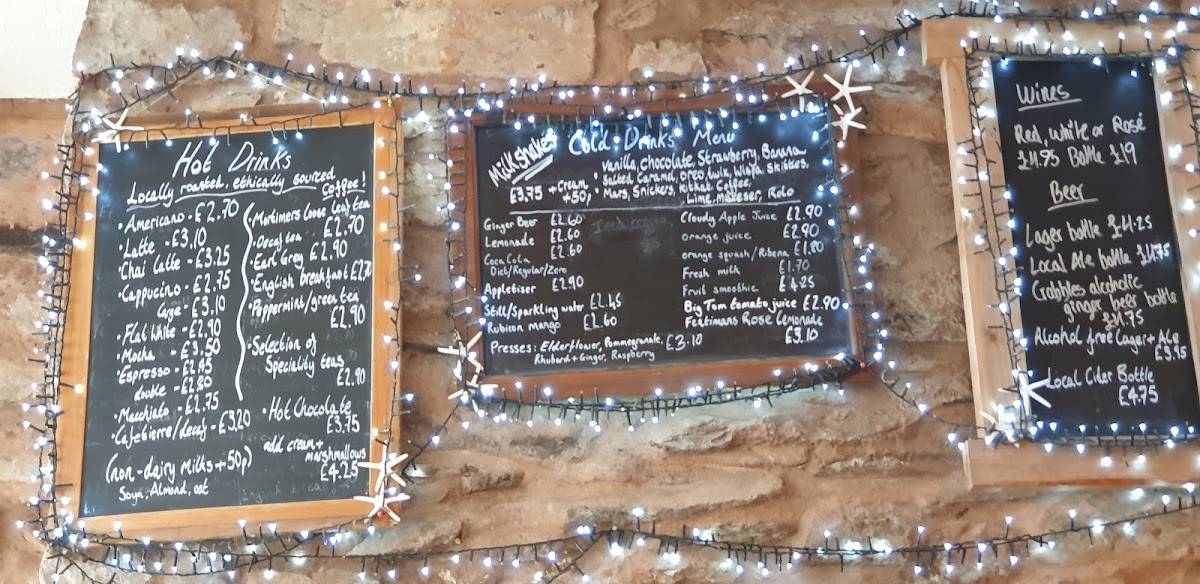 Hot Drinks
Locally roasted, ethically sourced
Coffee!
Americano - £2.70
Latte - £3.10
Chai Latte - £3.25
Cappucino - £2.75
Large - £3.10
Flat White - £2.90
Mocha - £3.50
Espresso - £2.45
double - £2.80
Macchiato - £2.75
Cafetierre/decaf - £3.20
(non-dairy milks + 50p)
Soya, Almond, oat
Mortimers loose leaf tea
£2.70
Decaf tea
Earl Grey £2.90
English breakfast £2.70
Peppermint/green tea
£2.90
Selection of
Speciality teas
£2.90
Hot Chocolate
£3.75
add cream +
marshmallows
£4.25
Cold Drinks Menu
Milkshakes
£3.75 + Cream
+50p
Vanilla, chocolate, Strawberry, Banana
Salted Caramel, oreo, twix, Wispa, Skittles,
Mars, Snickers, kitkat Coffee,
Lime, malteser, Rolo
Ginger Beer £2.60
Lemonade £2.60
Coca Cola £2.60
Diet/Regular/Zero
Appletiser £2.90
Still/Sparkling water £2.45
Rubicon mango £2.60
Presses: Elderflower, Pommegranate, £3.10
Rhubard + Ginger, Raspberry
Cloudy Apple Juice £2.90
orange juice £2.90
orange squash/Ribena £1.80
Fresh milk £1.70
Fruit smoothie £4.25
Big Tom tomato juice £2.90
Feetimans Rose Lemonade
£3.10
Wines
Red, white or Rosé
£4.95 Bottle £19
Beer
Lager bottle £4.25
Local Ale bottle £4.75
Crabbies alcoholic
ginger beer bottle
£4.75
Alcohol free Lager + Ale
£3.95
Local Cider Bottle
£4.75